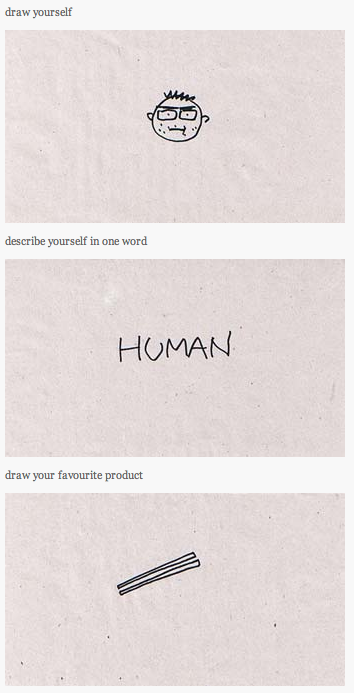 draw yourself
describe yourself in one word
HUMAN
draw your favourite product